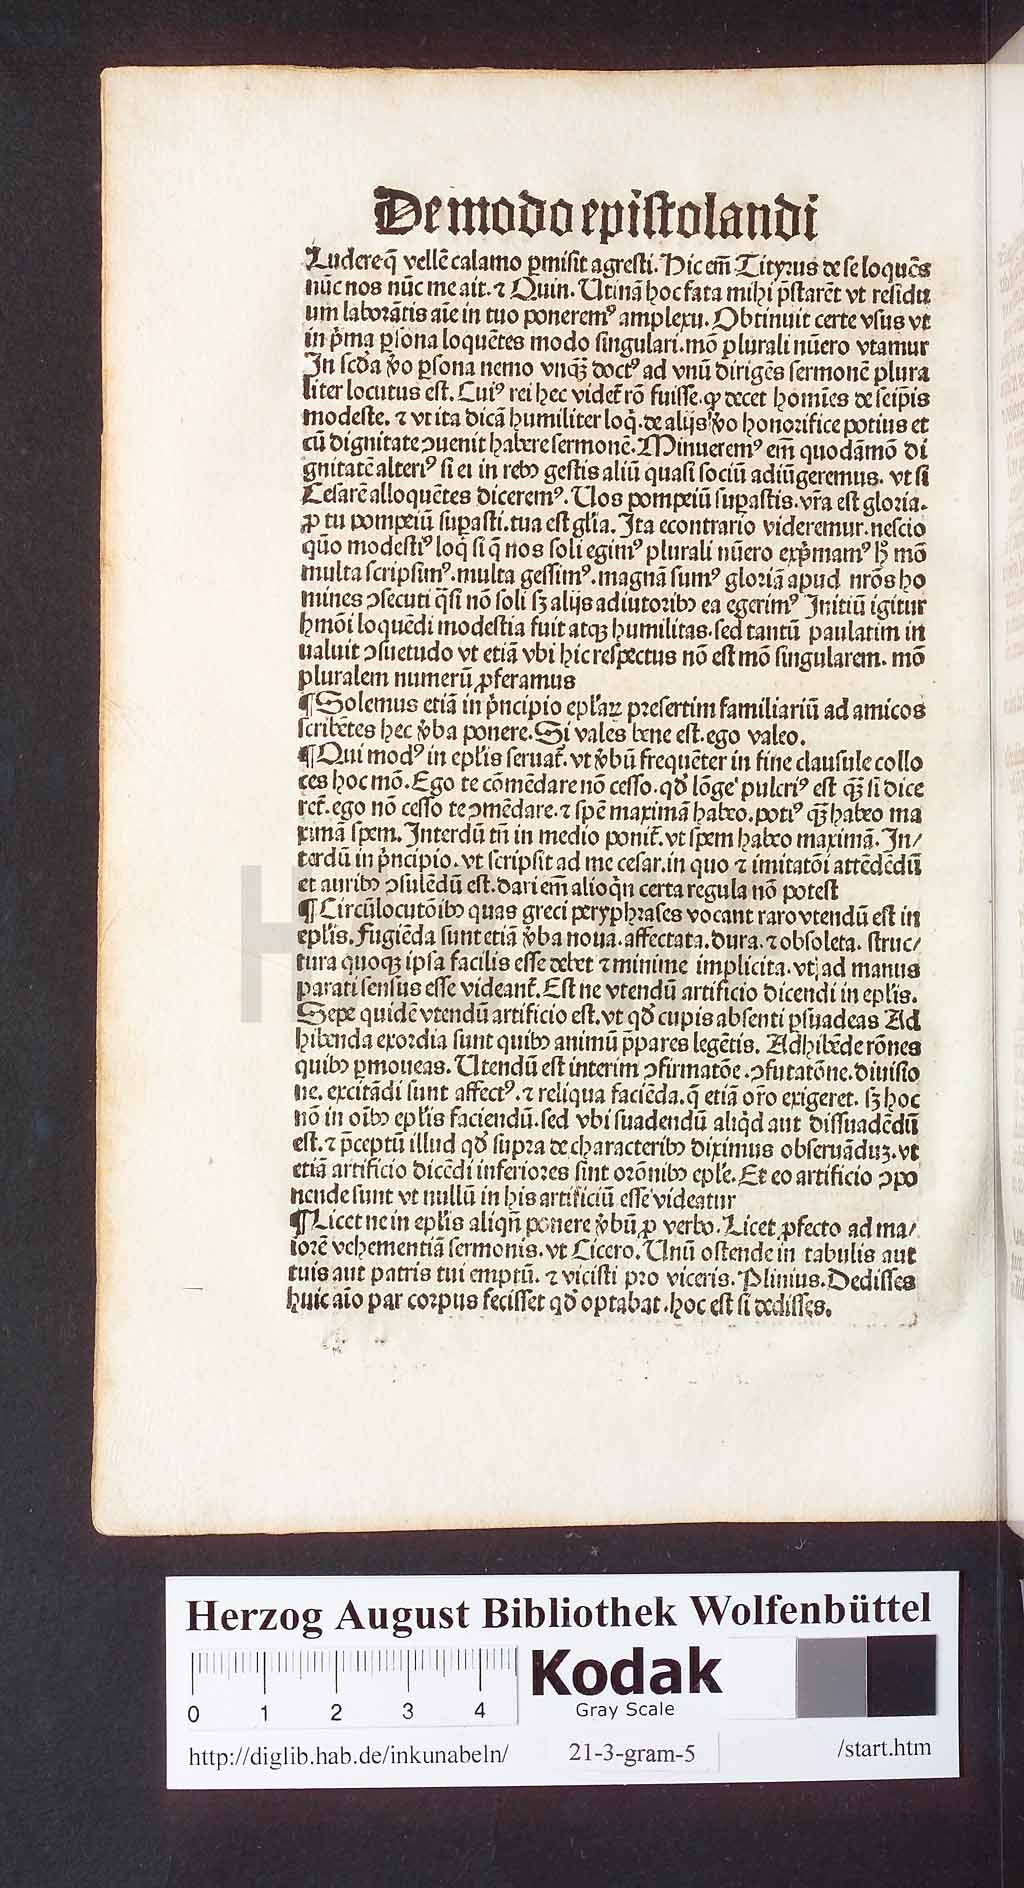 De modo epistolandi
Ludere q̃ vellẽ calamo ꝑmisit agresti. Hic em̃ Tityrus de se loquẽs
nũc nos nũc me ait. ⁊ Quin. Utinã hoc fata mihi p̃starẽt vt residu
um laborãtis aĩe in tuo poneremꝰ amplexu. Obtinuit certe vsus vt
in p̃ma ꝑsona loquẽtes modo singulari. mõ plurali nũero vtamur
In scd̃a ṽo ꝑsona nemo vnqꝫ doctꝰ ad vnũ dirigẽs sermonẽ plura
liter locutus est. Cuiꝰ rei hec videt̃ rõ fuisse. ꝙ decet homĩes de seip̃is
modeste. ⁊ vt ita dicã humiliter loq̃. de alijs ṽo honorifice potius et
cũ dignitate ꝯuenit habere sermonẽ. Minueremꝰ em̃ quodãmõ di
gnitatẽ alteriꝰ si ei in rebꝰ gestis aliũ quasi sociũ adiũgeremus. vt si
Cesarẽ alloquẽtes diceremꝰ. Uos pompeiũ suꝑastis. vr̃a est gloria.
ꝓ tu pompeiũ suꝑasti. tua est gl̃ia. Ita econtrario videremur. nescio
quõ modestiꝰ loq̃ si q̃ nos soli egimꝰ plurali nũero exp̃mamꝰ hꝰ mõ
multa scripsimꝰ. multa gessimꝰ. magnã sumꝰ gloriã apud nr̃os ho
mines ꝯsecuti q̃si nõ soli sꝫ alijs adiutoribꝰ ea egerimꝰ Initiũ igitur
hmõi loquẽdi modestia fuit atqꝫ humilitas. sed tantũ paulatim in
ualuit ꝯsuetudo vt etiã vbi hic respectus nõ est mõ singularem. mõ
pluralem numerũ ꝓferamus
¶ Solemus etiã in p̃ncipio epl̃aꝝ presertim familiariũ ad amicos
scribẽtes hec ṽba ponere. Si vales bene est. ego valeo.
¶ Qui modꝰ in epl̃is seruat̃. vt ṽbũ frequẽter in fine clausule collo
ces hoc mõ. Ego te cõmẽdare nõ cesso. qd̃ lõge pulcriꝰ est qꝫ si dice
ret̃. ego nõ cesso te ꝯmẽdare. ⁊ spẽ maximã habeo. potiꝰ qꝫ habeo ma
ximã spem. Interdũ tñ in medio ponit̃. vt spem habeo maximã. In/
terdũ in p̃ncipio. vt scripsit ad me cesar. in quo ⁊ imitatõi attẽdẽdũ
et auribꝰ ꝯsulẽdũ est. dari em̃ alioq̃n certa regula nõ potest
¶ Circũlocutõibꝰ quas greci peryphrases vocant raro vtendũ est in
epl̃is. Fugiẽda sunt etiã ṽba noua. affectata. dura. ⁊ obsoleta. struc/
tura quoqꝫ ipsa facilis esse debet ⁊ minime implicita. vt ad manus
parati sensus esse videant̃. Est ne vtendũ artificio dicendi in epl̃is.
Sepe quidẽ vtendũ artificio est. vt qd̃ cupis absenti ꝑsuadeas Ad
hibenda exordia sunt quibꝰ animũ p̃pares legẽtis. Adhibẽde rõnes
quibꝰ ꝑmoueas. Utendũ est interim ꝯfirmatõe. ꝯfutatõne. diuisio
ne. excitãdi sunt affectꝰ. ⁊ reliqua faciẽda. q̃ etiã or̃o exigeret. sꝫ hoc
nõ in oĩbꝰ epl̃is faciendũ. sed vbi suadendũ aliq̃d aut dissuadẽdũ
est. ⁊ p̃ceptũ illud qd̃ supra de characteribꝰ diximus obseruãduꝫ. vt
etiã artificio dicẽdi inferiores sint orõnibꝰ epl̃e. Et eo artificio ꝯpo
nende sunt vt nullũ in his artificiũ esse videatur
¶ Licet ne in epl̃is aliqñ ponere ṽbũ ꝓ verbo. Licet ꝓfecto ad ma/
iorẽ vehementiã sermonis. vt Cicero. Unũ ostende in tabulis aut
tuis aut patris tui emptũ. ⁊ vicisti pro viceris. Plinius. Dedisses
huic aĩo par corpus fecisset qd̃ optabat. hoc est si dedisses.
Herzog August Bibliothek Wolfenbüttel
0 1 2 3 4
Kodak
Gray Scale
http://diglib.hab.de/inkunabeln/ 21-3-gram-5 /start.htm